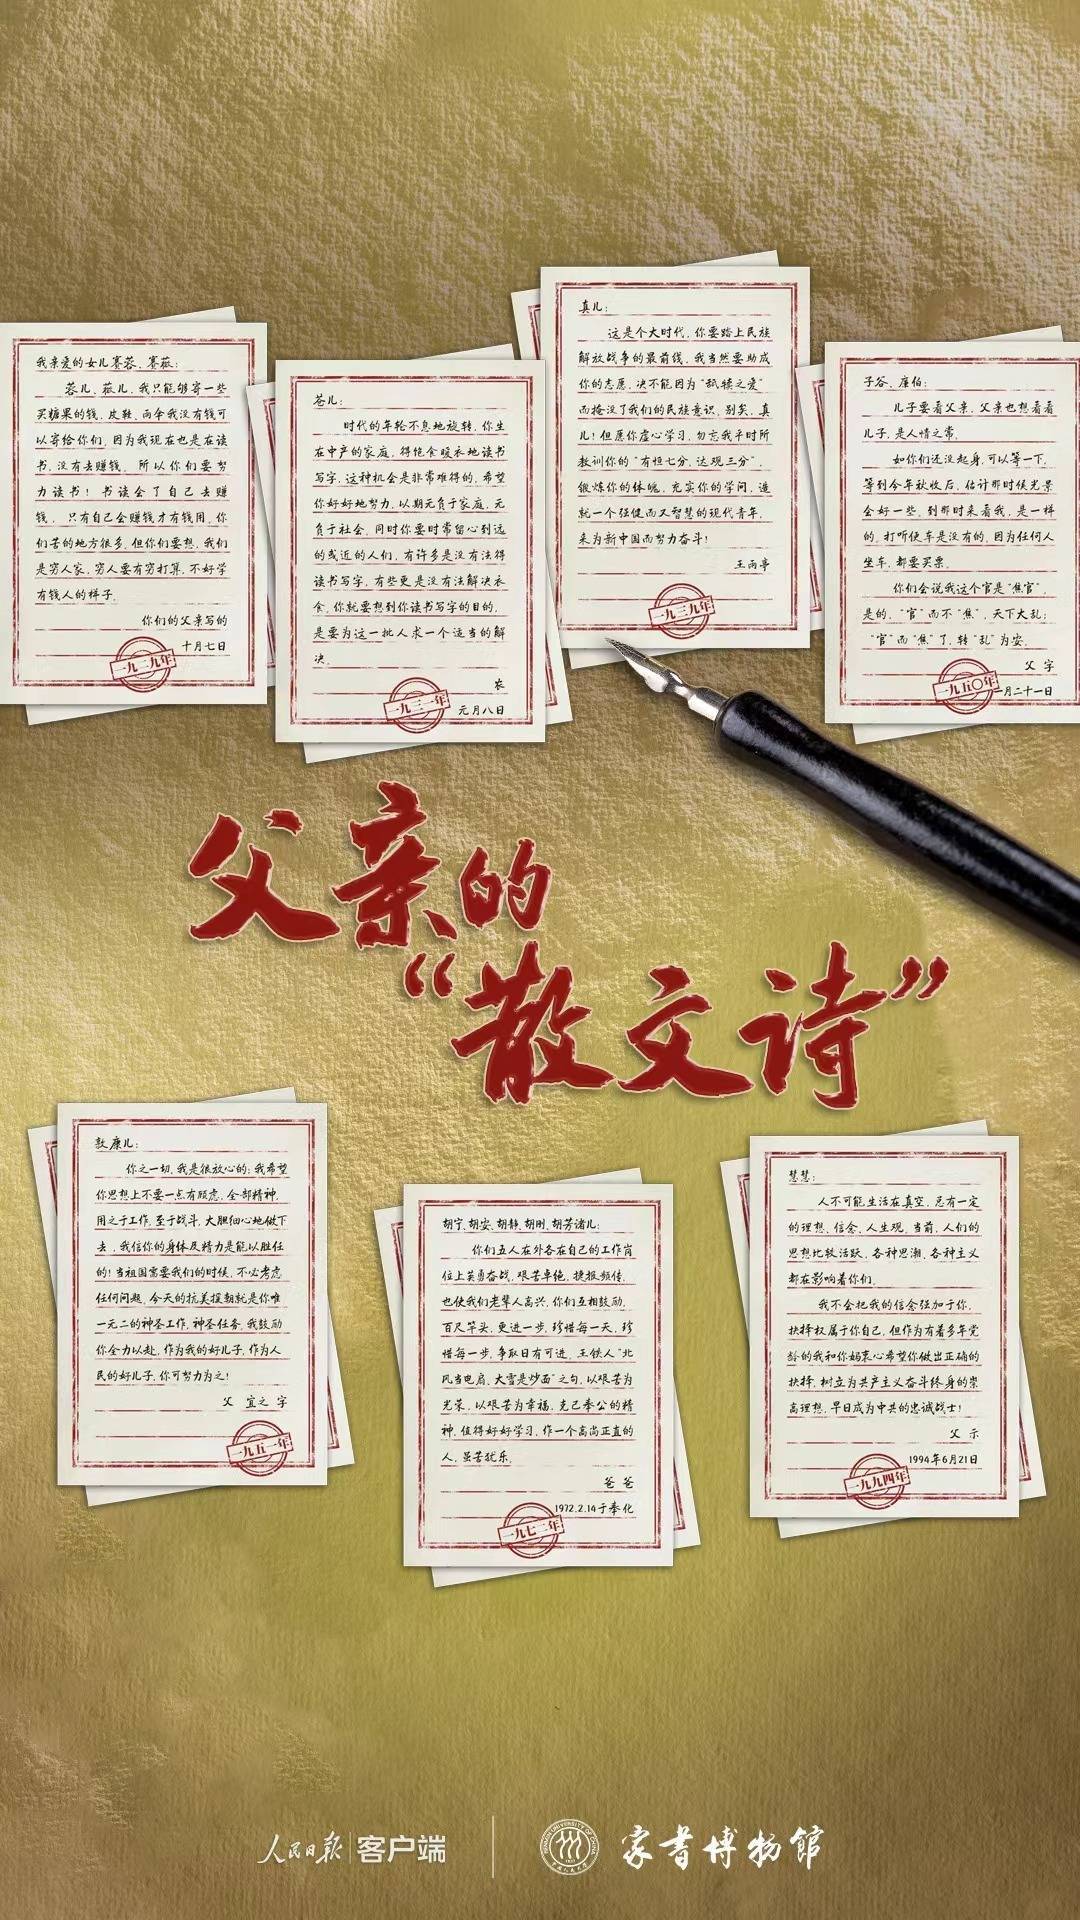 我亲爱的女儿赛蓉、赛菰:
蓉儿、菰儿,我只能够寄一些
买糖果的钱,皮鞋、雨伞我没有钱可
以寄给你们,因为我现在也是在读
书,没有去赚钱。所以你们要努
力读书!书读会了自己去赚
钱,只有自己会赚钱才有钱用。你
们苦的地方很多,但你们要想,我们
是穷人家,穷人要有穷打算,不好学
有钱人的样子。
你们的父亲写的
十月七日
一九二九年
苍儿:
时代的年轮不息地旋转,你生
在中产的家庭,得饱食暖衣地读书
写字,这种机会是非常难得的,希望
你好好地努力,以期无负于家庭,无
负于社会,同时你要时常留心到远
的或近的人们,有许多是没有法得
读书写字,有些更是没有法解决衣
食,你就要想到你读书写字的目的,
是要为这一批人求一个适当的解
决。
农
元月八日
一九三一年
真儿:
这是个大时代,你要踏上民族
解放战争的最前线,我当然要助成
你的志愿,决不能因为“舐犊之爱”
而掩没了我们的民族意识。别矣,真
儿!但愿你虚心学习,勿忘我平时所
教训你的“有恒七分,达观三分”,
锻炼你的体魄,充实你的学问,造
就一个强健而又智慧的现代青年,
来为新中国而努力奋斗!
王雨亭
一九三九年
子谷、廑伯:
儿子要看父亲,父亲也想看看
儿子,是人情之常。
如你们还没起身,可以等一下,
等到今年秋收后,估计那时候光景
会好一些,到那时来看我,是一样
的。打听便车是没有的,因为任何人
坐车,都要买票。
你们会说我这个官是“焦官”,
是的,“官”而不“焦”,天下大乱;
“官”而“焦”了,转“乱”为安。
父 字
一月二十一日
一九五〇年
父亲的
“散文诗”
敦康儿:
你之一切,我是很放心的;我希望
你思想上不要一点有顾虑,全部精神,
用之于工作,至于战斗,大胆细心地做下
去,我信你的身体及精力是能以胜任
的!当祖国需要我们的时候,不必考虑
任何问题,今天的抗美援朝就是你唯
一无二的神圣工作,神圣任务,我鼓励
你全力以赴,作为我的好儿子,作为人
民的好儿子,你可努力为之!
父 宜之 字
一九五一年
胡宁、胡安、胡静、胡刚、胡芳诸儿:
你们五人在外各在自己的工作岗
位上英勇奋战,艰苦卓绝,捷报频传,
也使我们老辈人高兴,你们互相鼓励,
百尺竿头,更进一步,珍惜每一天,珍
惜每一步,争取日有可进。王铁人“北
风当电扇,大雪是炒面”之句,以艰苦为
光荣,以艰苦为幸福,克己奉公的精
神,值得好好学习,作一个高尚正直的
人,虽苦犹乐。
爸爸
1972.2.14于奉化
一九七二年
慧慧:
人不可能生活在真空,总有一定
的理想、信念、人生观。当前,人们的
思想比较活跃,各种思潮、各种主义
都在影响着你们。
我不会把我的信念强加于你,
抉择权属于你自己,但作为有着多年党
龄的我和你妈衷心希望你做出正确的
抉择,树立为共产主义奋斗终身的崇
高理想,早日成为中共的忠诚战士!
父 示
1994年6月21日
一九九四年
人民日报 客户端
家书博物馆